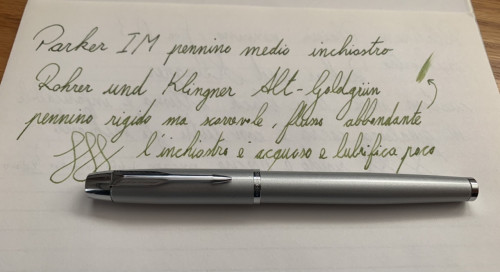 Parker IM pennino medio inchiostro
Rohrer und Klingner Alt-Goldgrün
pennino rigido ma scorrevole, flusso abbondante
l'inchiostro è acquoso e lubrifica poco